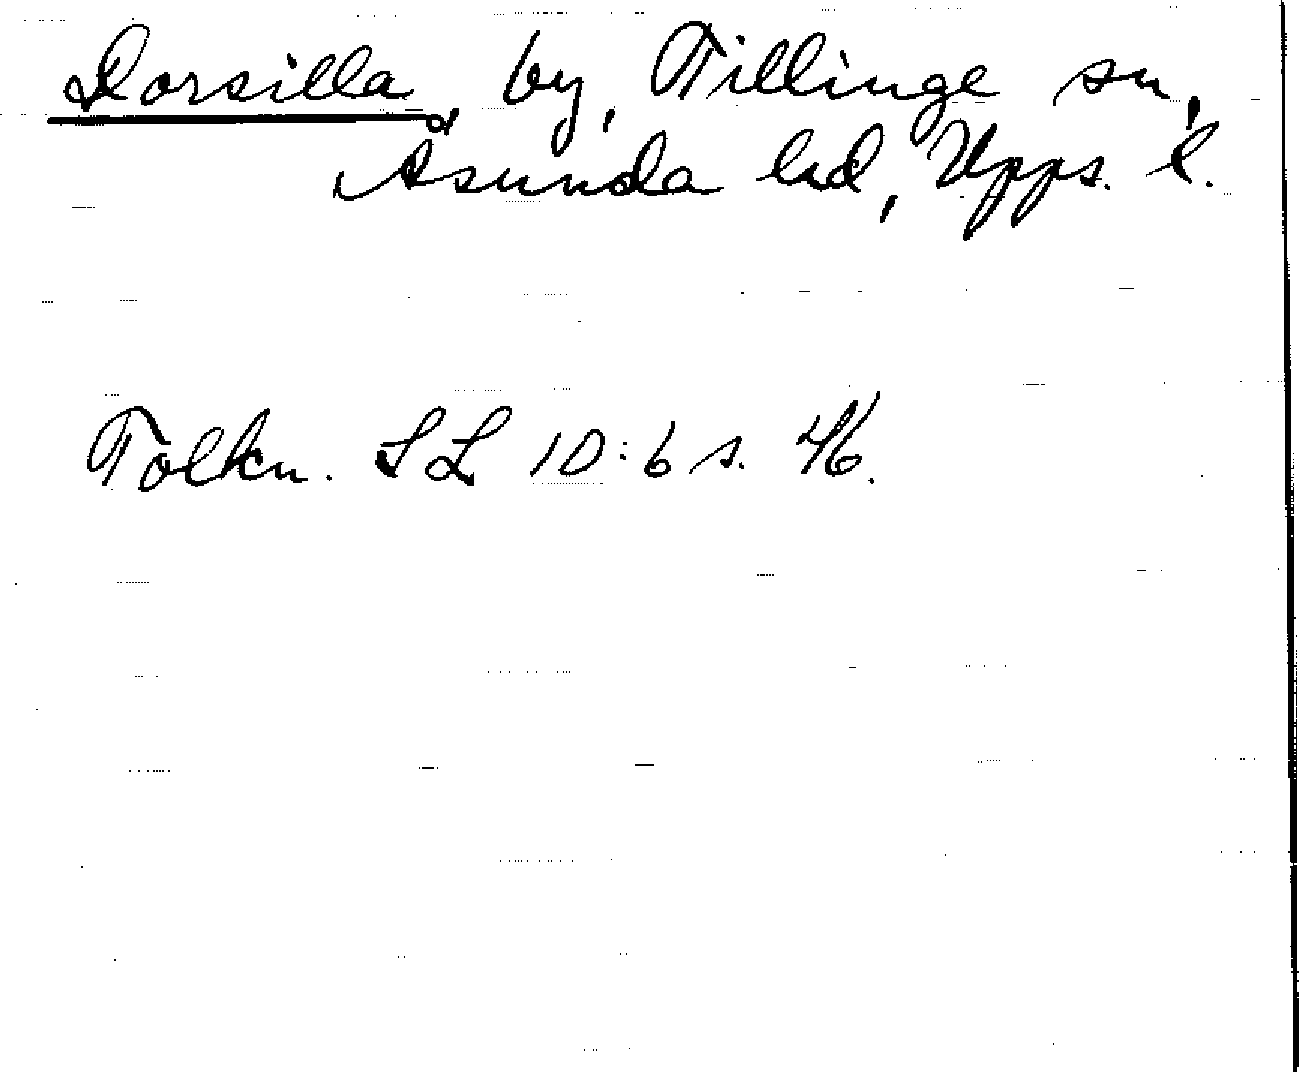 Dorsilla, by, Tillinge sn,
Åsunda hd, Upps. l.
Tolkn. SL 10:6 s. 46.